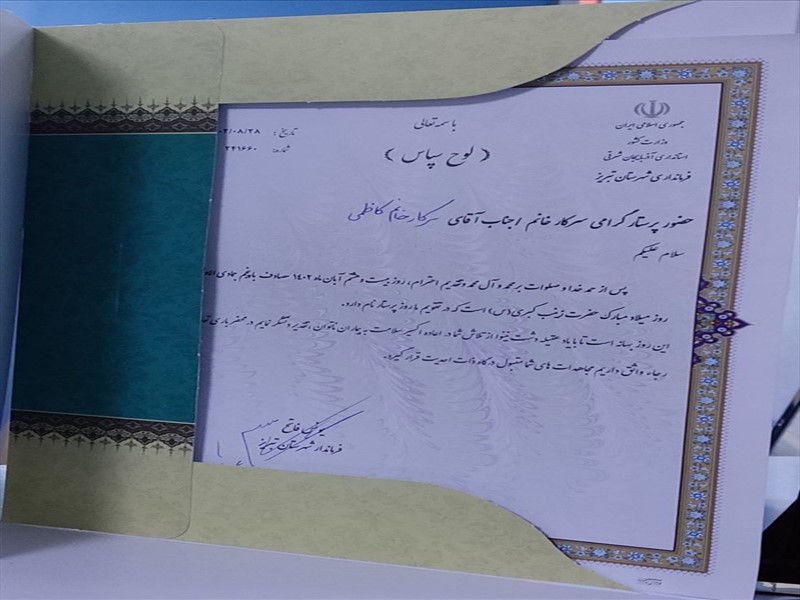 جمهوری اسلامی ایران
وزارت کشور
استانداری آذربایجان شرقی
فرمانداری شهرستان تبریز
باسمه تعالی
( لوح سپاس )
تاریخ : ۰۲/۰۸/۲۸
شماره:
حضور پرستار گرامی سرکار خانم / جناب آقای سرکار خانم کاظمی
سلام علیکم
پس از حمد خدا و صلوات بر محمد و آل محمد و تقدیم احترام، روز بیست و هشتم آبان ماه ۱۴۰۲ مصادف با پنجم جمادی
روز میلاد مبارک حضرت زینب کبری (س) است که در تقویم ما روز پرستار نام دارد.
این روز بهانه است تا با یاد عقیله دشت نینوا از تلاش شما در اعاده اکسیر سلامت به بیماران ناتوان، تقدیر و تشکر نمایم در محضر باری
رجاء واثق داریم مجاهدات های شما مقبول درگاه ذات احدیت قرار گیرد.
فاتح
فرماندار شهرستان تبریز